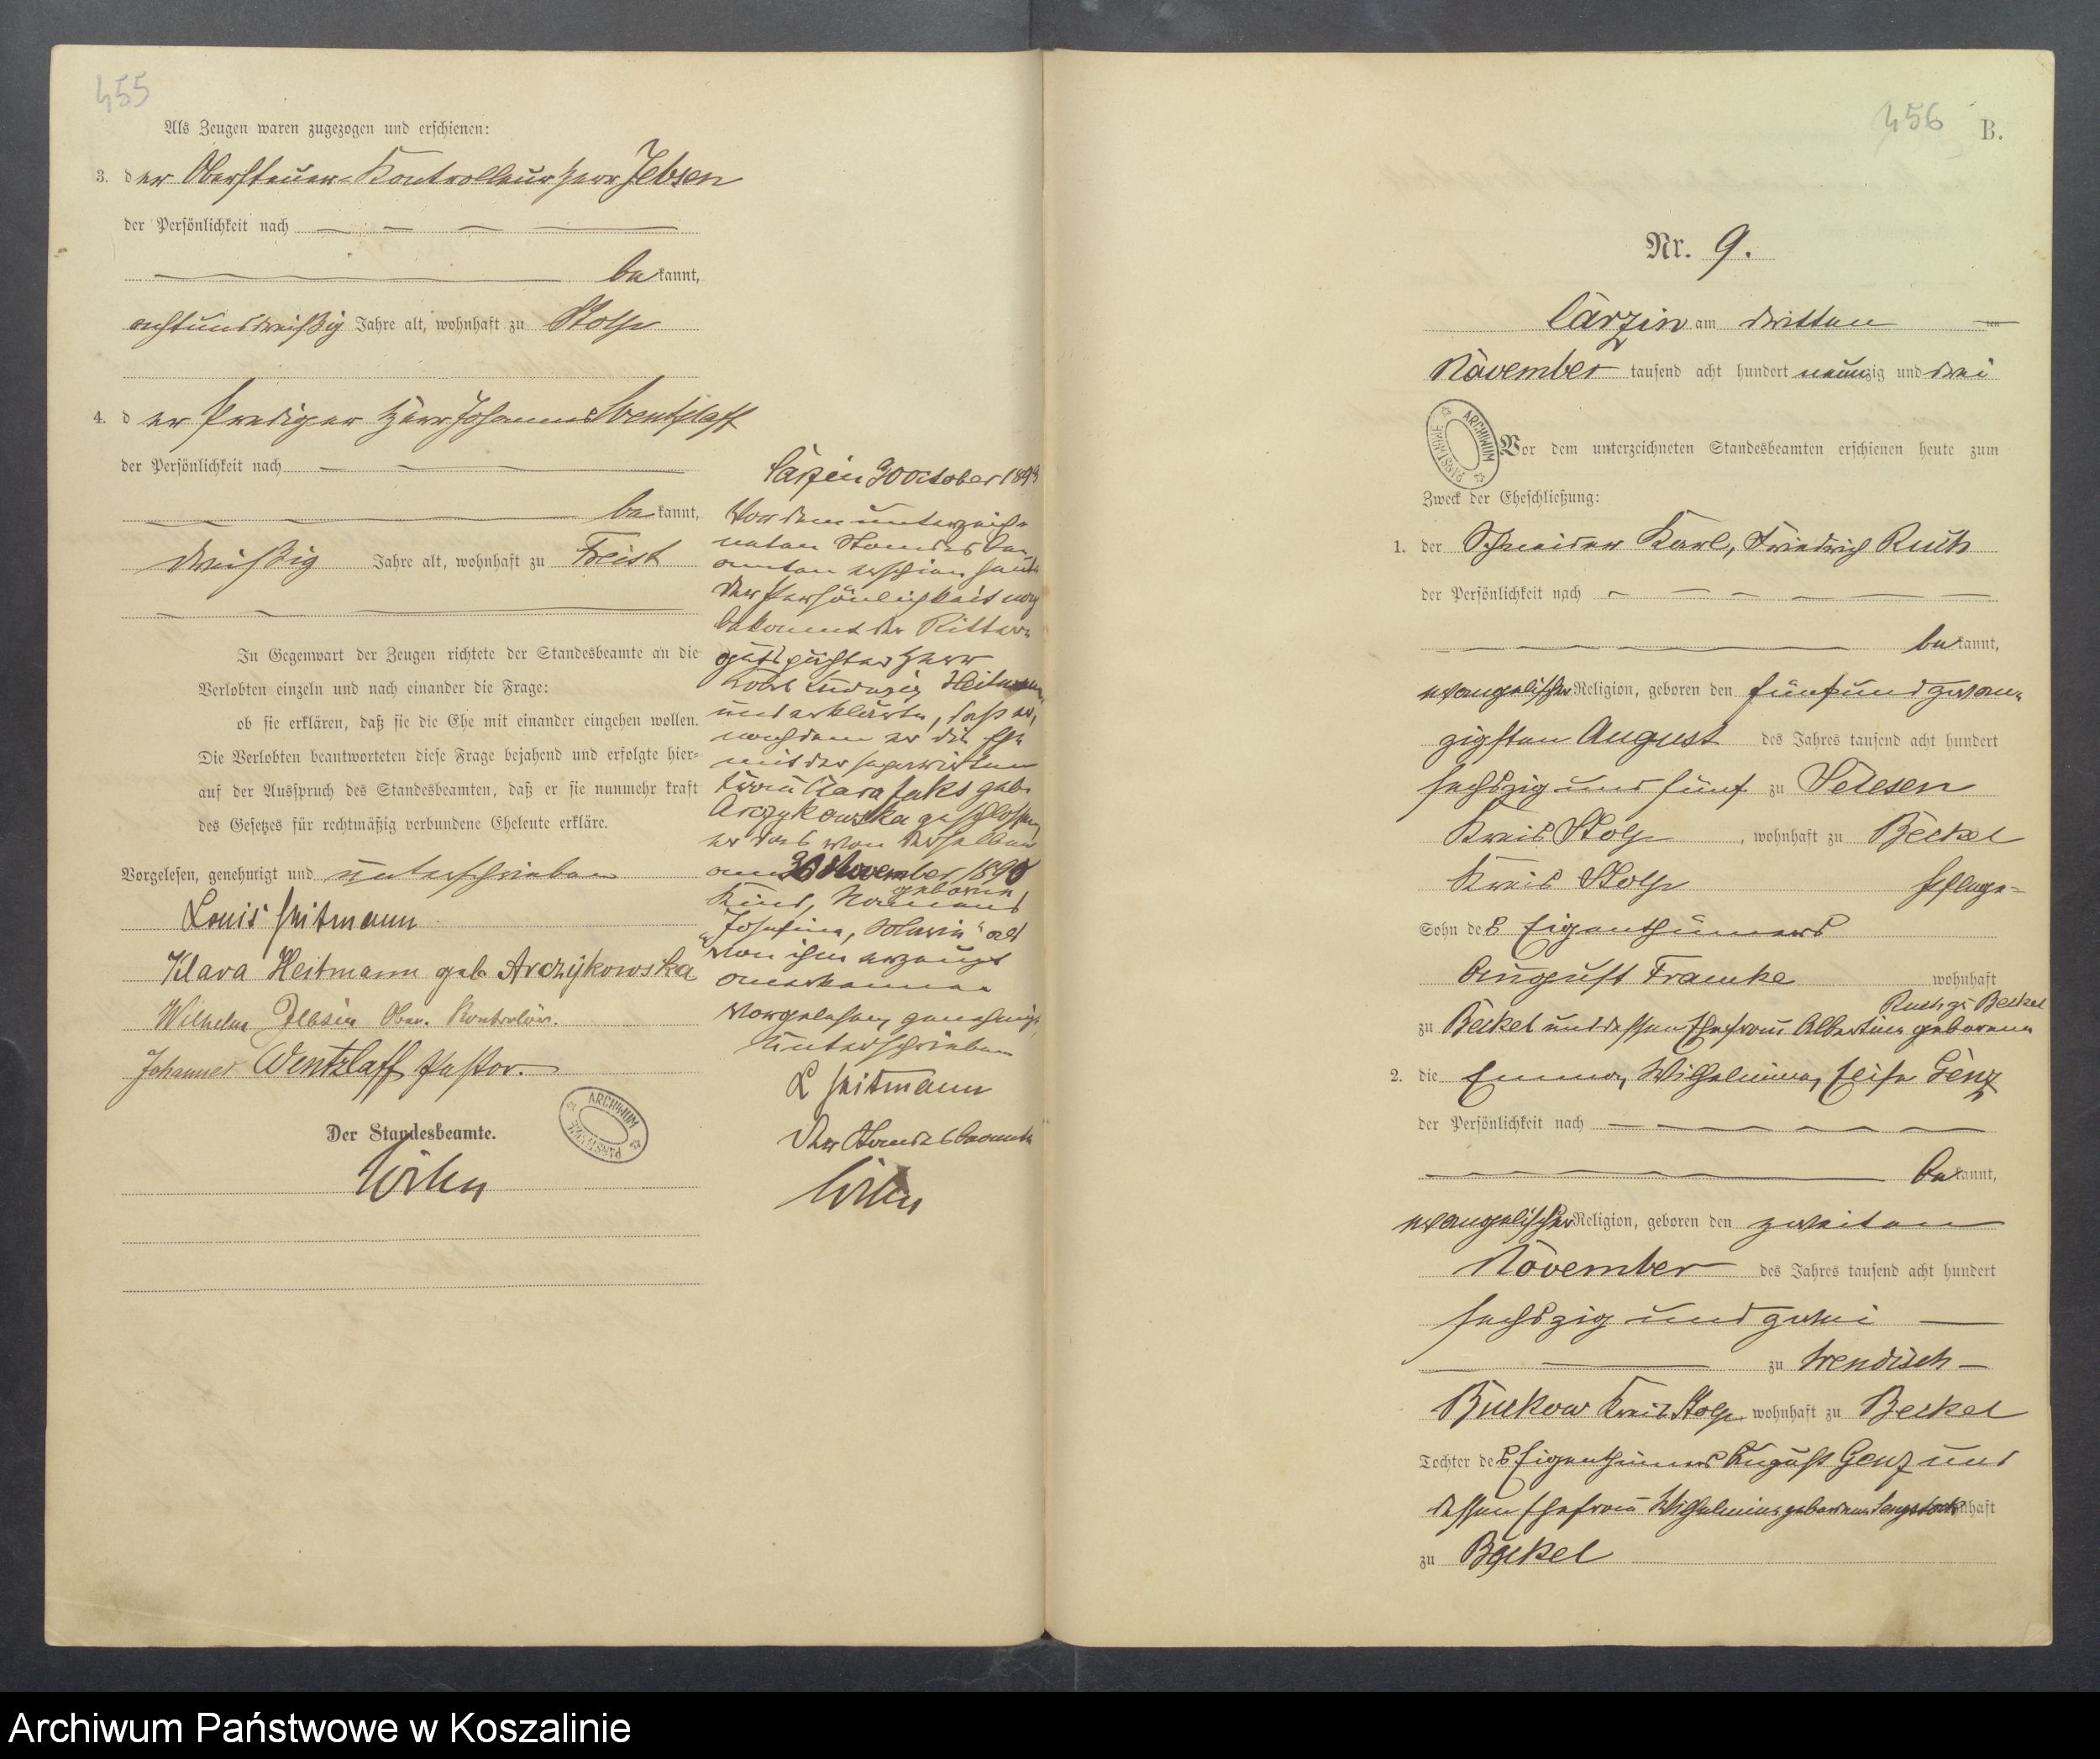 455
Als Zeugen waren zugezogen und erschienen:
3. der Obersteuer-Kontrolleur Herr Jebsen
der Persönlichkeit nach
bekannt,
achtunddreißig Jahre alt, wohnhaft zu Stolp
4. der Prediger Herr Johannes Wentzlaff
der Persönlichkeit nach
bekannt,
dreißig Jahre alt, wohnhaft zu Freist
In Gegenwart der Zeugen richtete der Standesbeamte an die
Verlobten einzeln und nach einander die Frage:
ob sie erklären, daß sie die Ehe mit einander eingehen wollen.
Die Verlobten beantworteten diese Frage bejahend und erfolgte hier-
auf der Ausspruch des Standesbeamten, daß er sie nunmehr kraft
des Gesetzes für rechtmäßig verbundene Eheleute erkläre.
Vorgelesen, genehmigt und unterschrieben
Louis Heitmann
Klara Heitmann geb. Arczykowska
Wilhelm Jebsen Ober. Kontrolör.
Johannes Wentzlaff Pastor.
Der Standesbeamte.
ARCHIWUM PAŃSTWOWE
Carzin 30 October 1893
Vor dem unterzeich-
neten Standesbe-
amten erschien heute
der Persönlichkeit nach
bekannt der Ritter-
gutspächter Herr
Karl Ludwig Heitmann
und erklärte, daß er,
nachdem er die Ehe
mit der separirten
Frau Klara geb.
Arczykowska geschlossen,
er das von derselben
am 30 November 1890
geborene
Kind, Namens
"Josefine, " als
von ihm erzeugt
anerkenne
Vorgelesen, genehmigt
unterschrieben
L Heitmann
Der Standesbeamte
456 B.
Nr. 9.
Carzin am dritten
November tausend acht hundert neunzig und drei
ARCHIWUM PAŃSTWOWE
Vor dem unterzeichneten Standesbeamten erschienen heute zum
Zweck der Eheschließung:
1. der Schneider Karl, Friedrich Ruch
der Persönlichkeit nach
bekannt,
evangelischer Religion, geboren den fünfundzwan-
zigsten August des Jahres tausend acht hundert
sechszig und fünf zu Selesen
Kreis Stolp, wohnhaft zu Beckel
Kreis Stolp Pflege-
Sohn des Eigenthümers
August Framke wohnhaft
Ruch zu Beckel
zu Beckel und dessen Ehefrau Albertine geborene
2. die Emma, Wilhelmine, Elise Genz
der Persönlichkeit nach
bekannt,
evangelischer Religion, geboren den zweiten
November des Jahres tausend acht hundert
sechszig und zwei
zu Wendisch-
Buckow Kreis Stolp wohnhaft zu Beckel
Tochter des Eigenthümers August Genz und
dessen Ehefrau Wilhelmine geborene Sengstock wohnhaft
zu Beckel
Archiwum Państwowe w Koszalinie